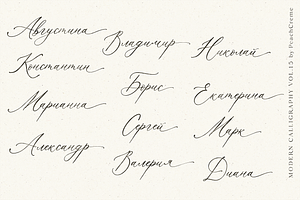 Августина
Владимир
Николай
Константин
Борис
Екатерина
Марианна
Сергей
Марк
Александр
Валерия
Диана
MODERN CALLIGRAPHY VOL.15 by PeachCreme